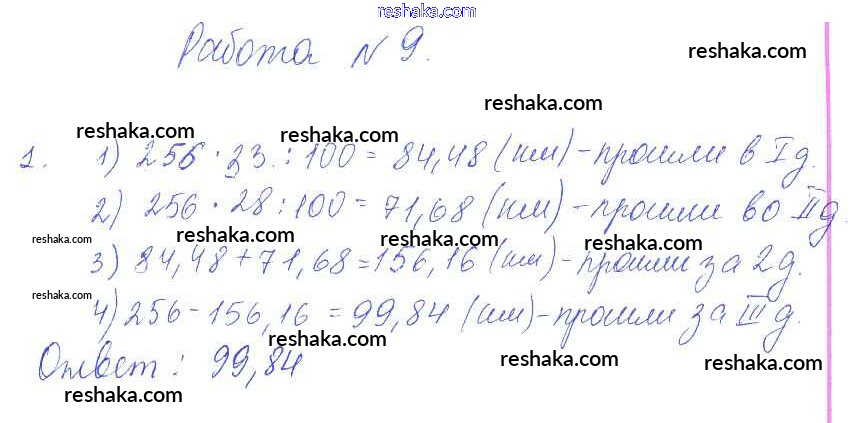 reshaka.com
Работа № 9.
reshaka.com
reshaka.com
reshaka.com reshaka.com
1. 1) 256 · 33 : 100 = 84,48 (км) - прошли в I д.
reshaka.com reshaka.com
2) 256 · 28 : 100 = 71,68 (км) - прошли во II д.
reshaka.com reshaka.com reshaka.com reshaka.com
3) 84,48 + 71,68 = 156,16 (км) - прошли за 2 д.
reshaka.com
4) 256 - 156,16 = 99,84 (км) - прошли за III д.
reshaka.com reshaka.com reshaka.com
Ответ: 99,84
reshaka.com reshaka.com reshaka.com